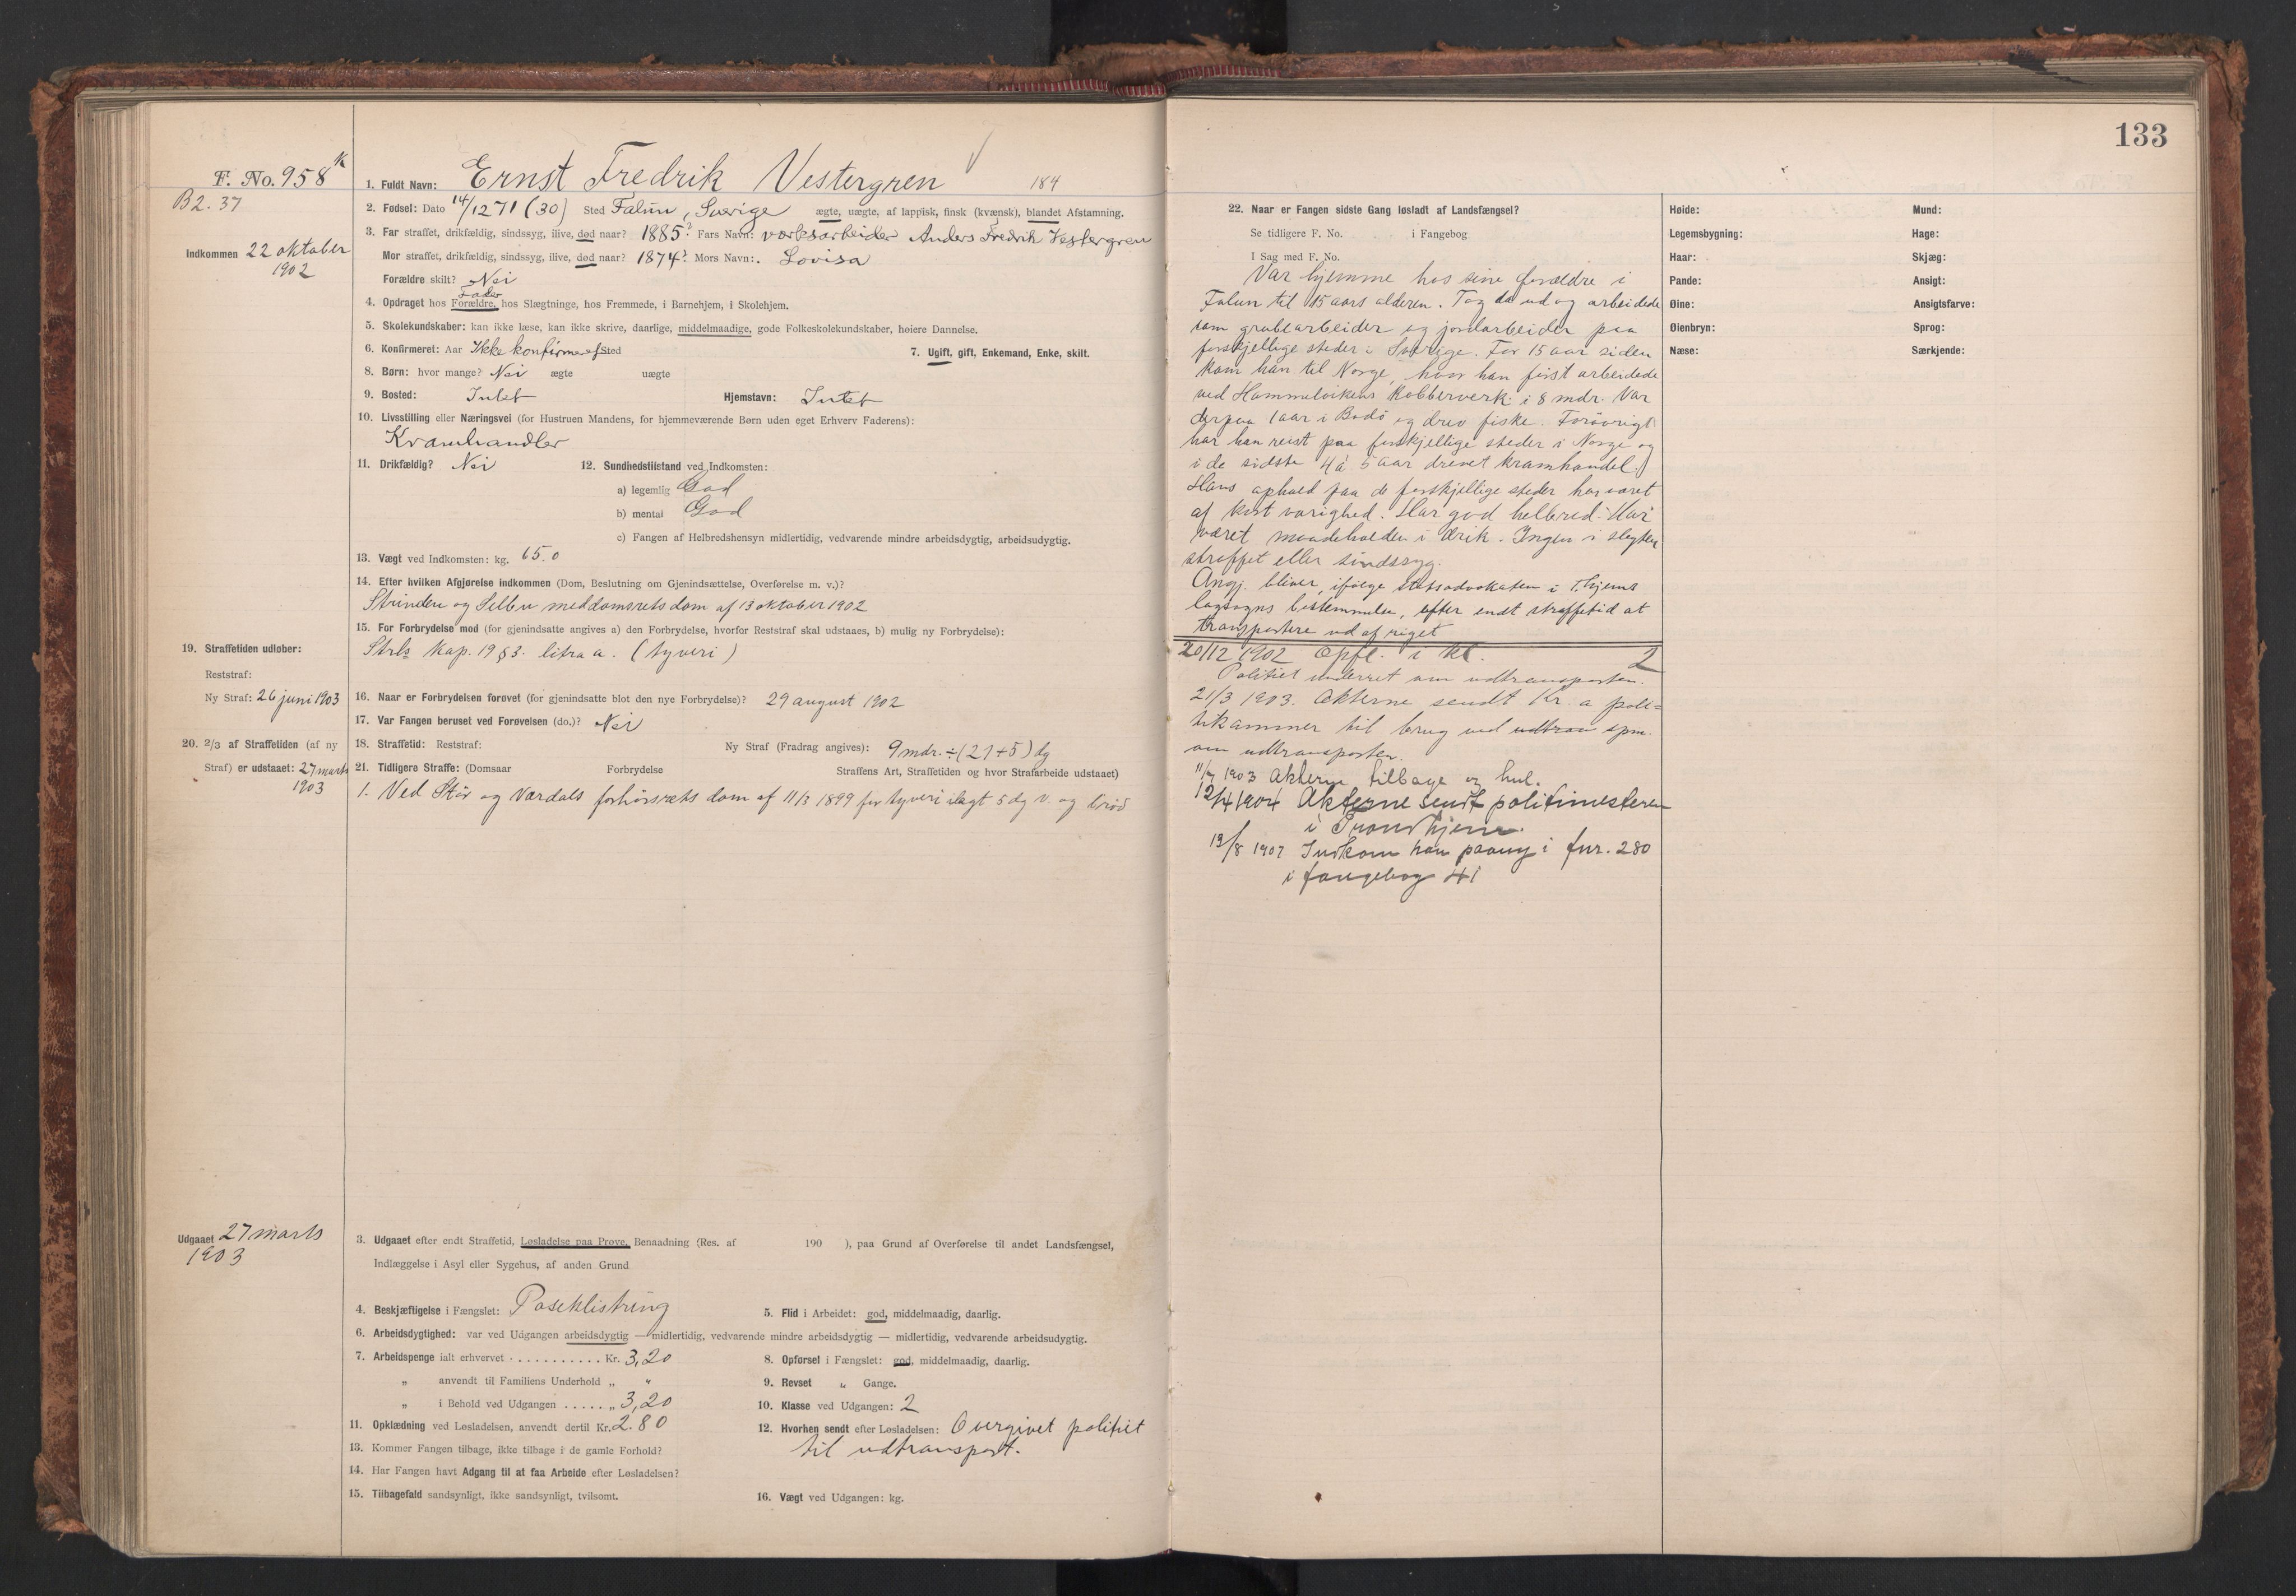 133
F. No. 958 K
B2. 37
Indkommen 22 oktober
1902
1. Fuldt Navn: Ernst Fredrik Vestergren 184
2. Fødsel: Dato 14/12 71 (30) Sted Falun, Sverige ægte, uægte, af lappisk, finsk (kvænsk), blandet Afstamning.
3. Far straffet, drikfældig, sindssyg, ilive, død naar? 1885? Fars Navn: værksarbeider Anders Fredrik Vestergren
Mor straffet, drikfældig, sindssyg, ilive, død naar? 1874? Mors Navn: Lovisa
Forældre skilt? Nei
Fader
4. Opdraget hos Forældre, hos Slægtninge, hos Fremmede, i Barnehjem, i Skolehjem.
5. Skolekundskaber: kan ikke læse, kan ikke skrive, daarlige, middelmaadige, gode Folkeskolekundskaber, høiere Dannelse.
6. Konfirmeret: Aar Ikke konfirmert Sted 7. Ugift, gift, Enkemand, Enke, skilt.
8. Børn: hvor mange? Nei ægte uægte
9. Bosted: Intet Hjemstavn: Intet
10. Livsstilling eller Næringsvei (for Hustruen Mandens, for hjemmeværende Børn uden eget Erhverv Faderens):
Kramhandler
11. Drikfældig? Nei 12. Sundhedstilstand ved Indkomsten:
a) legemlig God
b) mental God
c) Fangen af Helbredshensyn midlertidig, vedvarende mindre arbeidsdygtig, arbeidsudygtig.
13. Vægt ved Indkomsten: kg. 65.0
14. Efter hvilken Afgjørelse indkommen (Dom, Beslutning om Gjenindsættelse, Overførelse m. v.)?
Strinden og Selbu meddomsrets dom af 13 oktober 1902
15. For Forbrydelse mod (for gjenindsatte angives a) den Forbrydelse, hvorfor Reststraf skal udstaaes, b) mulig ny Forbrydelse):
Strls kap. 19 § 3. litra a. (tyveri)
19. Straffetiden udløber:
Reststraf:
Ny Straf: 26 juni 1903
16. Naar er Forbrydelsen forøvet (for gjenindsatte blot den nye Forbrydelse)? 29 august 1902
17. Var Fangen beruset ved Forøvelsen (do.)? Nei
20. 2/3 af Straffetiden (af ny
Straf) er udstaaet: 27 marts
1903
18. Straffetid: Reststraf: Ny Straf (Fradrag angives): 9 mdr. ÷ (21+5) dg
21. Tidligere Straffe: (Domsaar Forbrydelse Straffens Art, Straffetiden og hvor Strafarbeide udstaaet)
1. Ved Stör og Værdals forhörsrets dom af 11/3 1899 for tyveri ilagt 5 dg v. og bröd
Udgaaet 27 marts
1903
3. Udgaaet efter endt Straffetid, Løsladelse paa Prøve, Benaadning (Res. af 190 ), paa Grund af Overførelse til andet Landsfængsel,
Indlæggelse i Asyl eller Sygehus, af anden Grund
4. Beskjæftigelse i Fængslet: Poseklistring 5. Flid i Arbeidet: god, middelmaadig, daarlig.
6. Arbeidsdygtighed: var ved Udgangen arbeidsdygtig — midlertidig, vedvarende mindre arbeidsdygtig — midlertidig, vedvarende arbeidsudygtig.
7. Arbeidspenge ialt erhvervet . . . . . . . . . . . Kr. 3,20 8. Opførsel i Fængslet: god, middelmaadig, daarlig.
„ anvendt til Familiens Underhold „ „ 9. Revset „ Gange.
„ i Behold ved Udgangen . . . . . „ 3,20 10. Klasse ved Udgangen: 2
11. Opklædning ved Løsladelsen, anvendt dertil Kr. 2.80 12. Hvorhen sendt efter Løsladelsen: Overgivet politiet
til udtransport.
13. Kommer Fangen tilbage, ikke tilbage i de gamle Forhold?
14. Har Fangen havt Adgang til at faa Arbeide efter Løsladelsen?
15. Tilbagefald sandsynligt, ikke sandsynligt, tvilsomt. 16. Vægt ved Udgangen: kg.
22. Naar er Fangen sidste Gang løsladt af Landsfængsel?
Se tidligere F. No. i Fangebog
I Sag med F. No.
Var hjemme hos sine forældre i
Falun til 15 aars alderen. Tog da ud og arbeidede
som grubearbeider og jordarbeider paa
forskjellige steder i Sverige. For 15 aar siden
kom han til Norge, hvor han först arbeidede
ved Hammelvikens Kobberverk i 8 mdr. Var
derpaa 1 aar i Bodö og drev fiske. Forövrigt
har han reist paa forskjellige steder i Norge og
i de sidste 4 à 5 aar drevet kramhandel.
Hans ophold paa de forskjellige steder har været
af kort varighed. Har god helbred. Har
været maadeholden i drik. Ingen i slegten
straffet eller sindssyg.
Angj. bliver, ifölge statsadvokaten i T.hjems
lagsogns bestemmelse, efter endt straffetid at
transportere ud af riget
20/12 1902 Opfl. i kl. 2
Politiet underret om udtransporten.
21/3 1903. Akterne sendt Kr. a poli-
tikammer til brug ved udtran spm.
om udtransporten.
1903 Akterne tilbage og hul.
12/4 1904 Akterne sendt politimesteren
i Trondhjem.
13/8 1907 Indkom han paany i fnr. 280
i fangebog 41
Høide:
Legemsbygning:
Haar:
Pande:
Øine:
Øienbryn:
Næse:
Mund:
Hage:
Skjæg:
Ansigt:
Ansigtsfarve:
Sprog:
Særkjende: